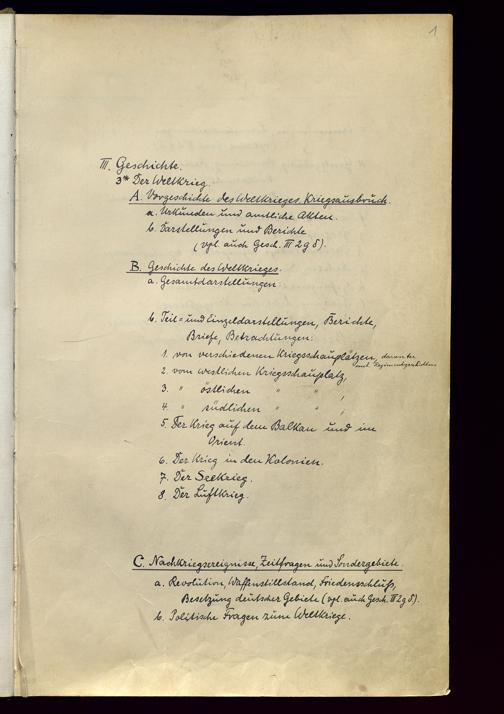 1
III. Geschichte.
3** Der Weltkrieg.
A. Vorgeschichte des Weltkrieges, Kriegsausbruch.
a. Urkunden und amtliche Akten.
b. Darstellungen und Berichte
(vgl. auch Gesch. III 2 g δ).
B. Geschichte des Weltkrieges.
a. Gesamtdarstellungen
b. Teil= und Einzeldarstellungen, Berichte,
Briefe, Betrachtungen:
1. von verschiedenen Kriegsschauplätzen, darunter
2. vom westlichen Kriegsschauplatz,
3. " östlichen " " ,
4. " südlichen " " ,
5. Der Krieg auf dem Balkan und im
Orient.
6. Der Krieg in den Kolonien.
7. Der Seekrieg.
8. Der Luftkrieg.
C. Nachkriegsereignisse, Zeitfragen und Sondergebiete.
a. Revolution, Waffenstillstand, Friedensschluß,
Besetzung deutscher Gebiete (vgl. auch Gesch. III 2 g δ).
b. Politische Fragen zum Weltkriege.